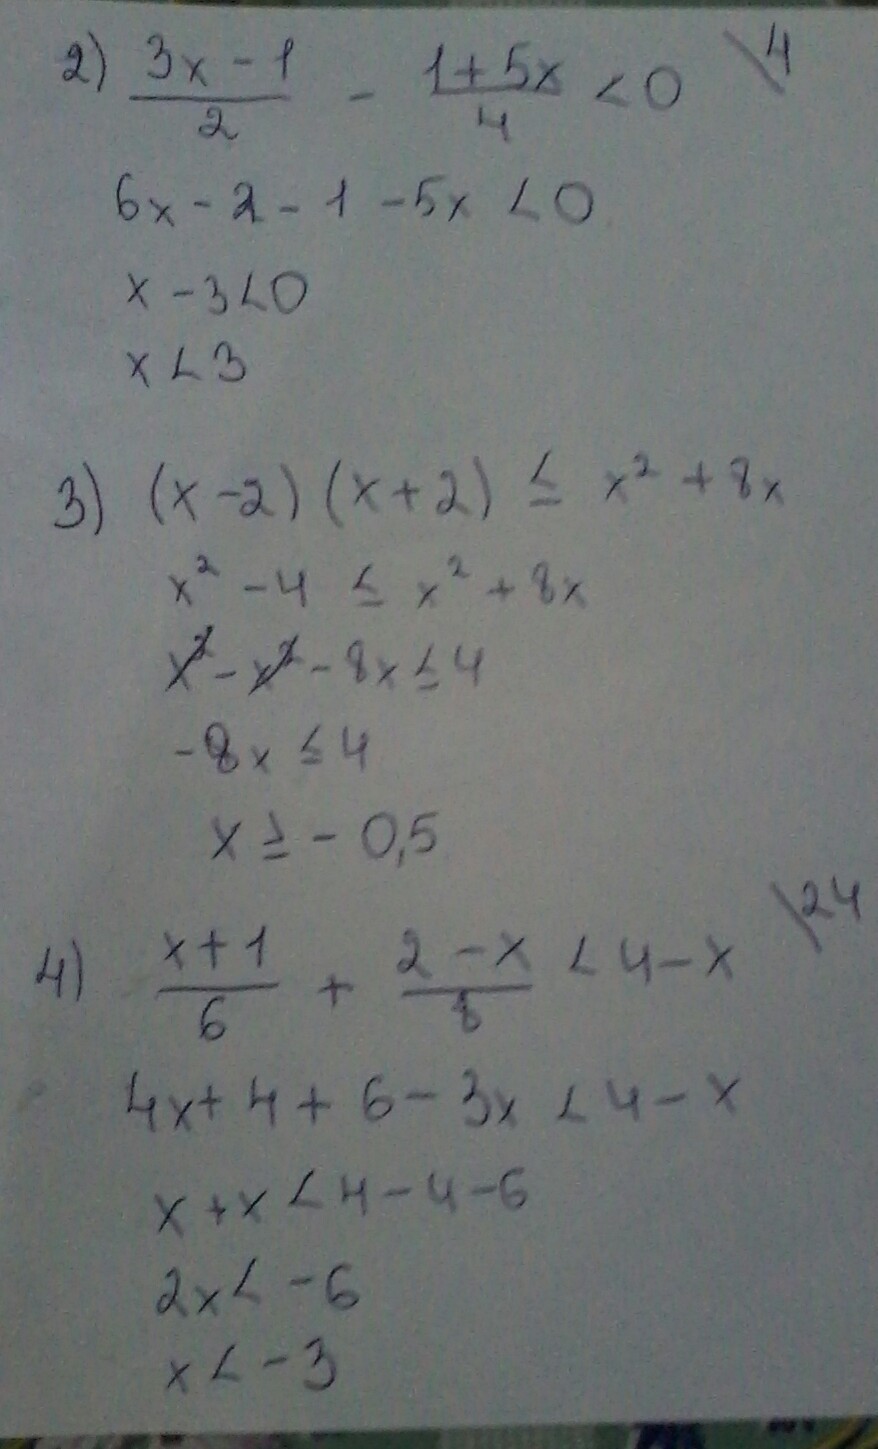 2) (3x - 1)/2 - (1 + 5x)/4 < 0 \4
6x - 2 - 1 - 5x < 0
x - 3 < 0
x < 3
3) (x - 2) (x + 2) ≤ x² + 8x
x² - 4 ≤ x² + 8x
x² - x² - 8x ≤ 4
-8x ≤ 4
x ≥ - 0,5
4) (x + 1)/6 + (2 - x)/8 < 4 - x \24
4x + 4 + 6 - 3x < 4 - x
x + x < 4 - 4 - 6
2x < - 6
x < - 3